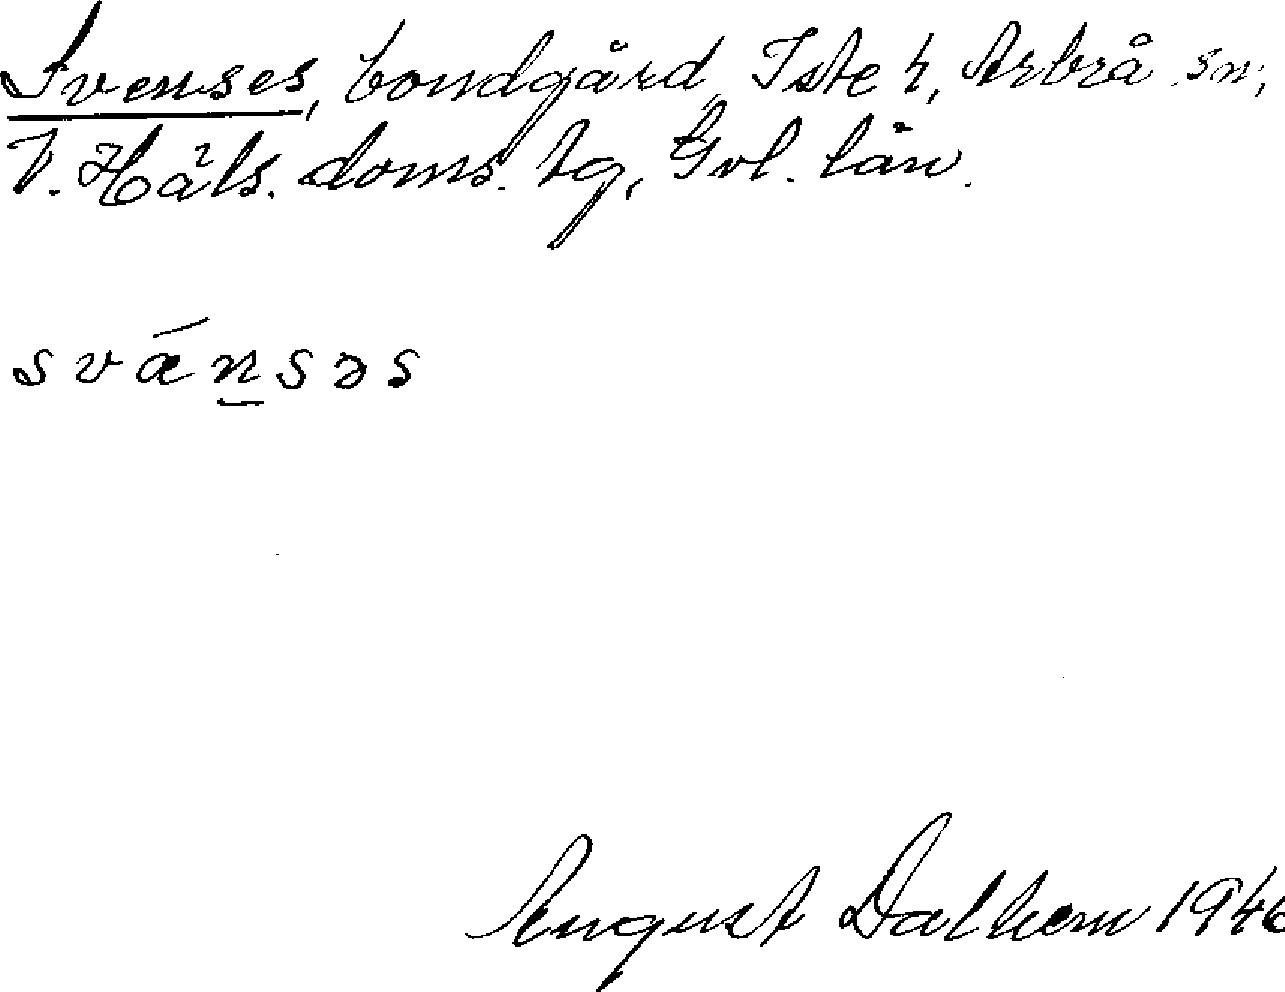 Svenses, bondgård, Iste h, Arbrå sn,
V. Häls. doms. tg, Gvl. län.
svǽn̲səs
August Dalhem 1946